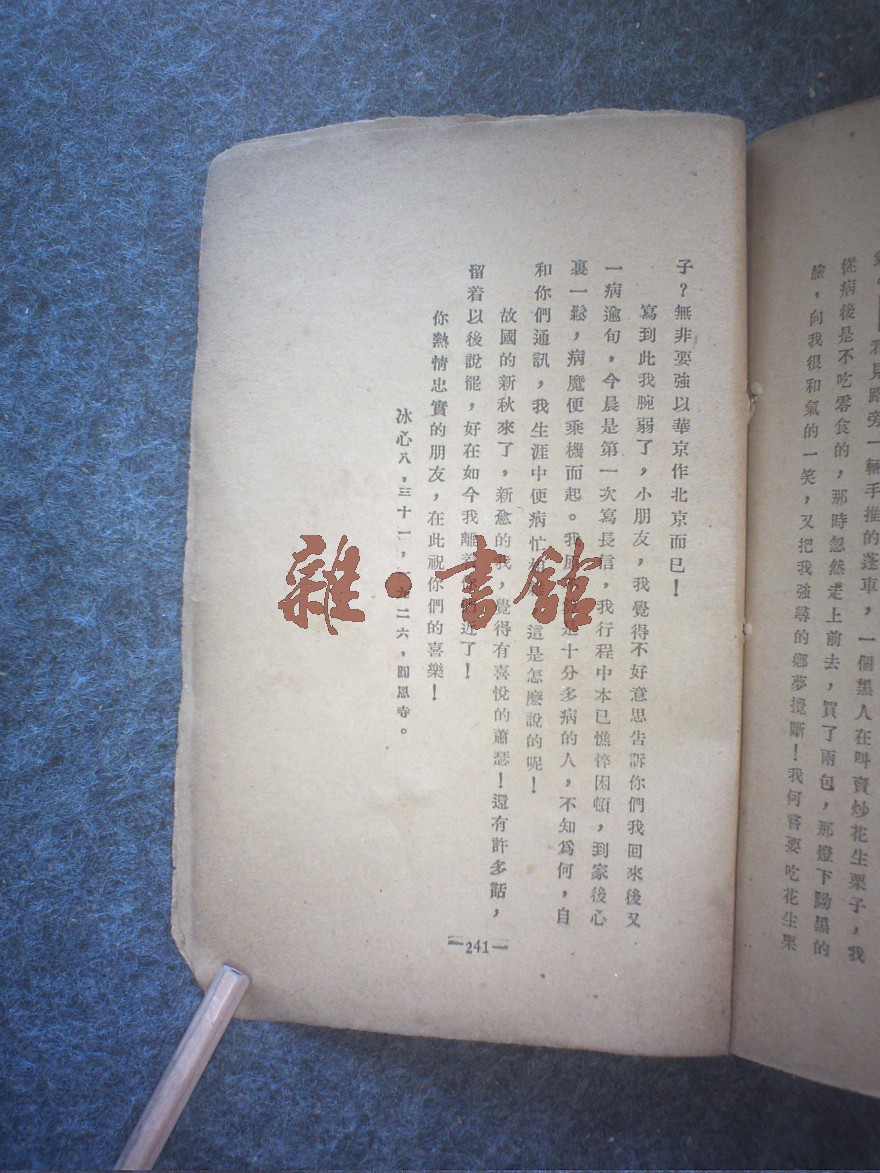 見路旁一輛手推的蓬車，一個黑人在叫賣炒花生栗子，我
從病後是不吃零食的，那時忽然走上前去，買了兩包，那燈下黝黑的
臉，向我很和氣的一笑，又把我強尋的鄉夢攪斷！我何嘗要吃花生栗
子？無非要強以華京作北京而已！
寫到此我腕弱了，小朋友，我覺得不好意思告訴你們我回來後又
一病逾旬，今晨是第一次寫長信，我行程中本已憔悴困頓，到家後心
裏一鬆，病魔便乘機而起。我 十分多病的人，不知爲何，自
和你們通訊，我生涯中便病忙 這是怎麼說的呢！
故國的新秋來了，新愈的我，覺得有喜悅的蕭瑟！還有許多話，
留着以後說罷，好在如今我離着 近了！
你熱情忠實的朋友，在此祝你們的喜樂！
冰心八，三十一，一九二六，圓恩寺。
—241—
雜·書館